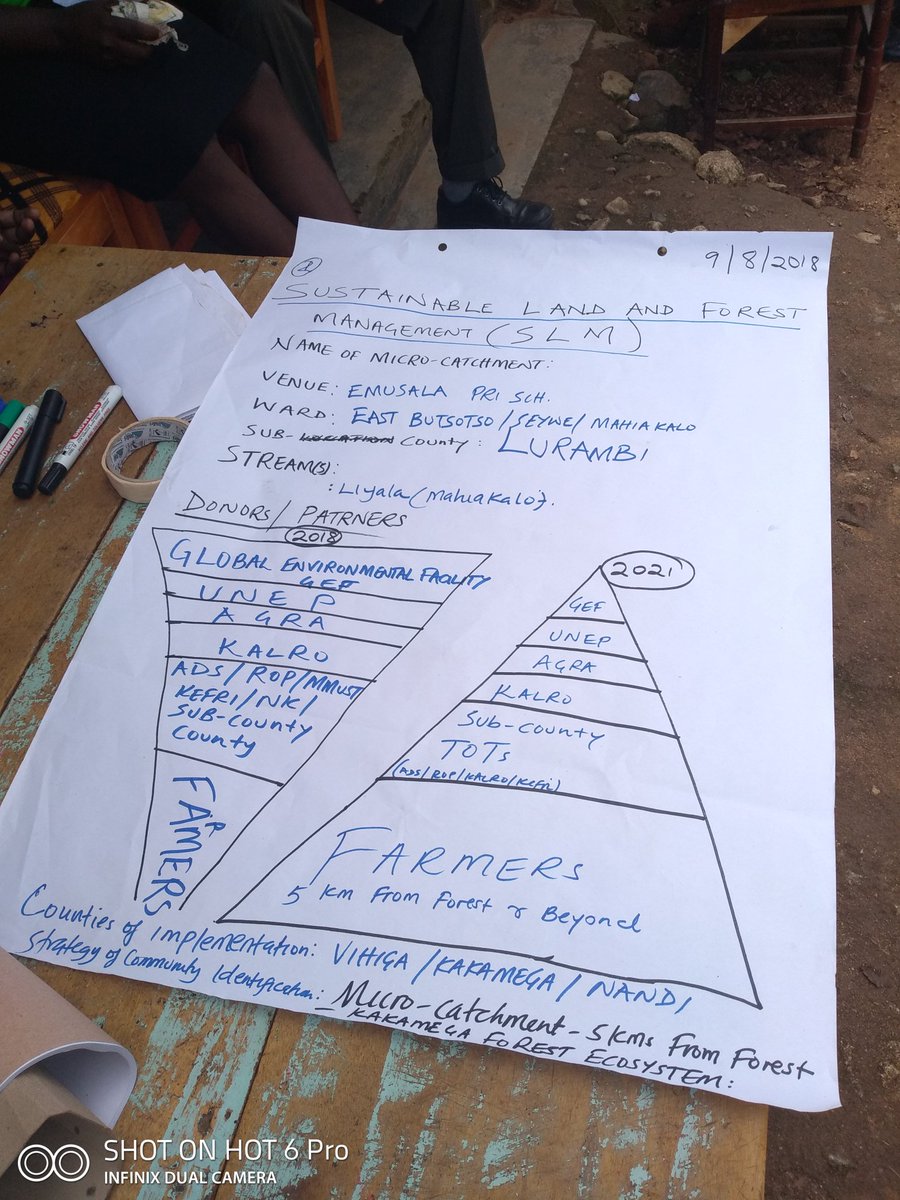 9/8/2018
1
SUSTAINABLE LAND AND FOREST
MANAGEMENT (SLM)
NAME OF MICRO-CATCHMENT:
VENUE: EMUSALA PRI SCH.
WARD: EAST BUTSOTSO/SEYWE/MAHIAKALO
SUB-LOCATION COUNTY: LURAMBI
STREAM(S):
: Liyala (Mahiakalo).
DONORS/PATRNERS
2018
GLOBAL ENVIRONMENTAL FACILITY
GEF
UNEP
AGRA
KALRO
ADS/ROP/MMUST
KEFRI/NK/
SUB-COUNTY
COUNTY
FARMERS
2021
GEF
UNEP
AGRA
KALRO
Sub-county
TOTs
(ADS/ROP/KALRO/KEFRI)
FARMERS
5 Km From Forest & Beyond
Counties of Implementation: VIHIGA/KAKAMEGA/NANDI
Strategy of Community Identification: MICRO-CATCHMENT-5Kms From Forest
- KAKAMEGA FOREST ECOSYSTEM:
SHOT ON HOT 6 Pro
INFINIX DUAL CAMERA